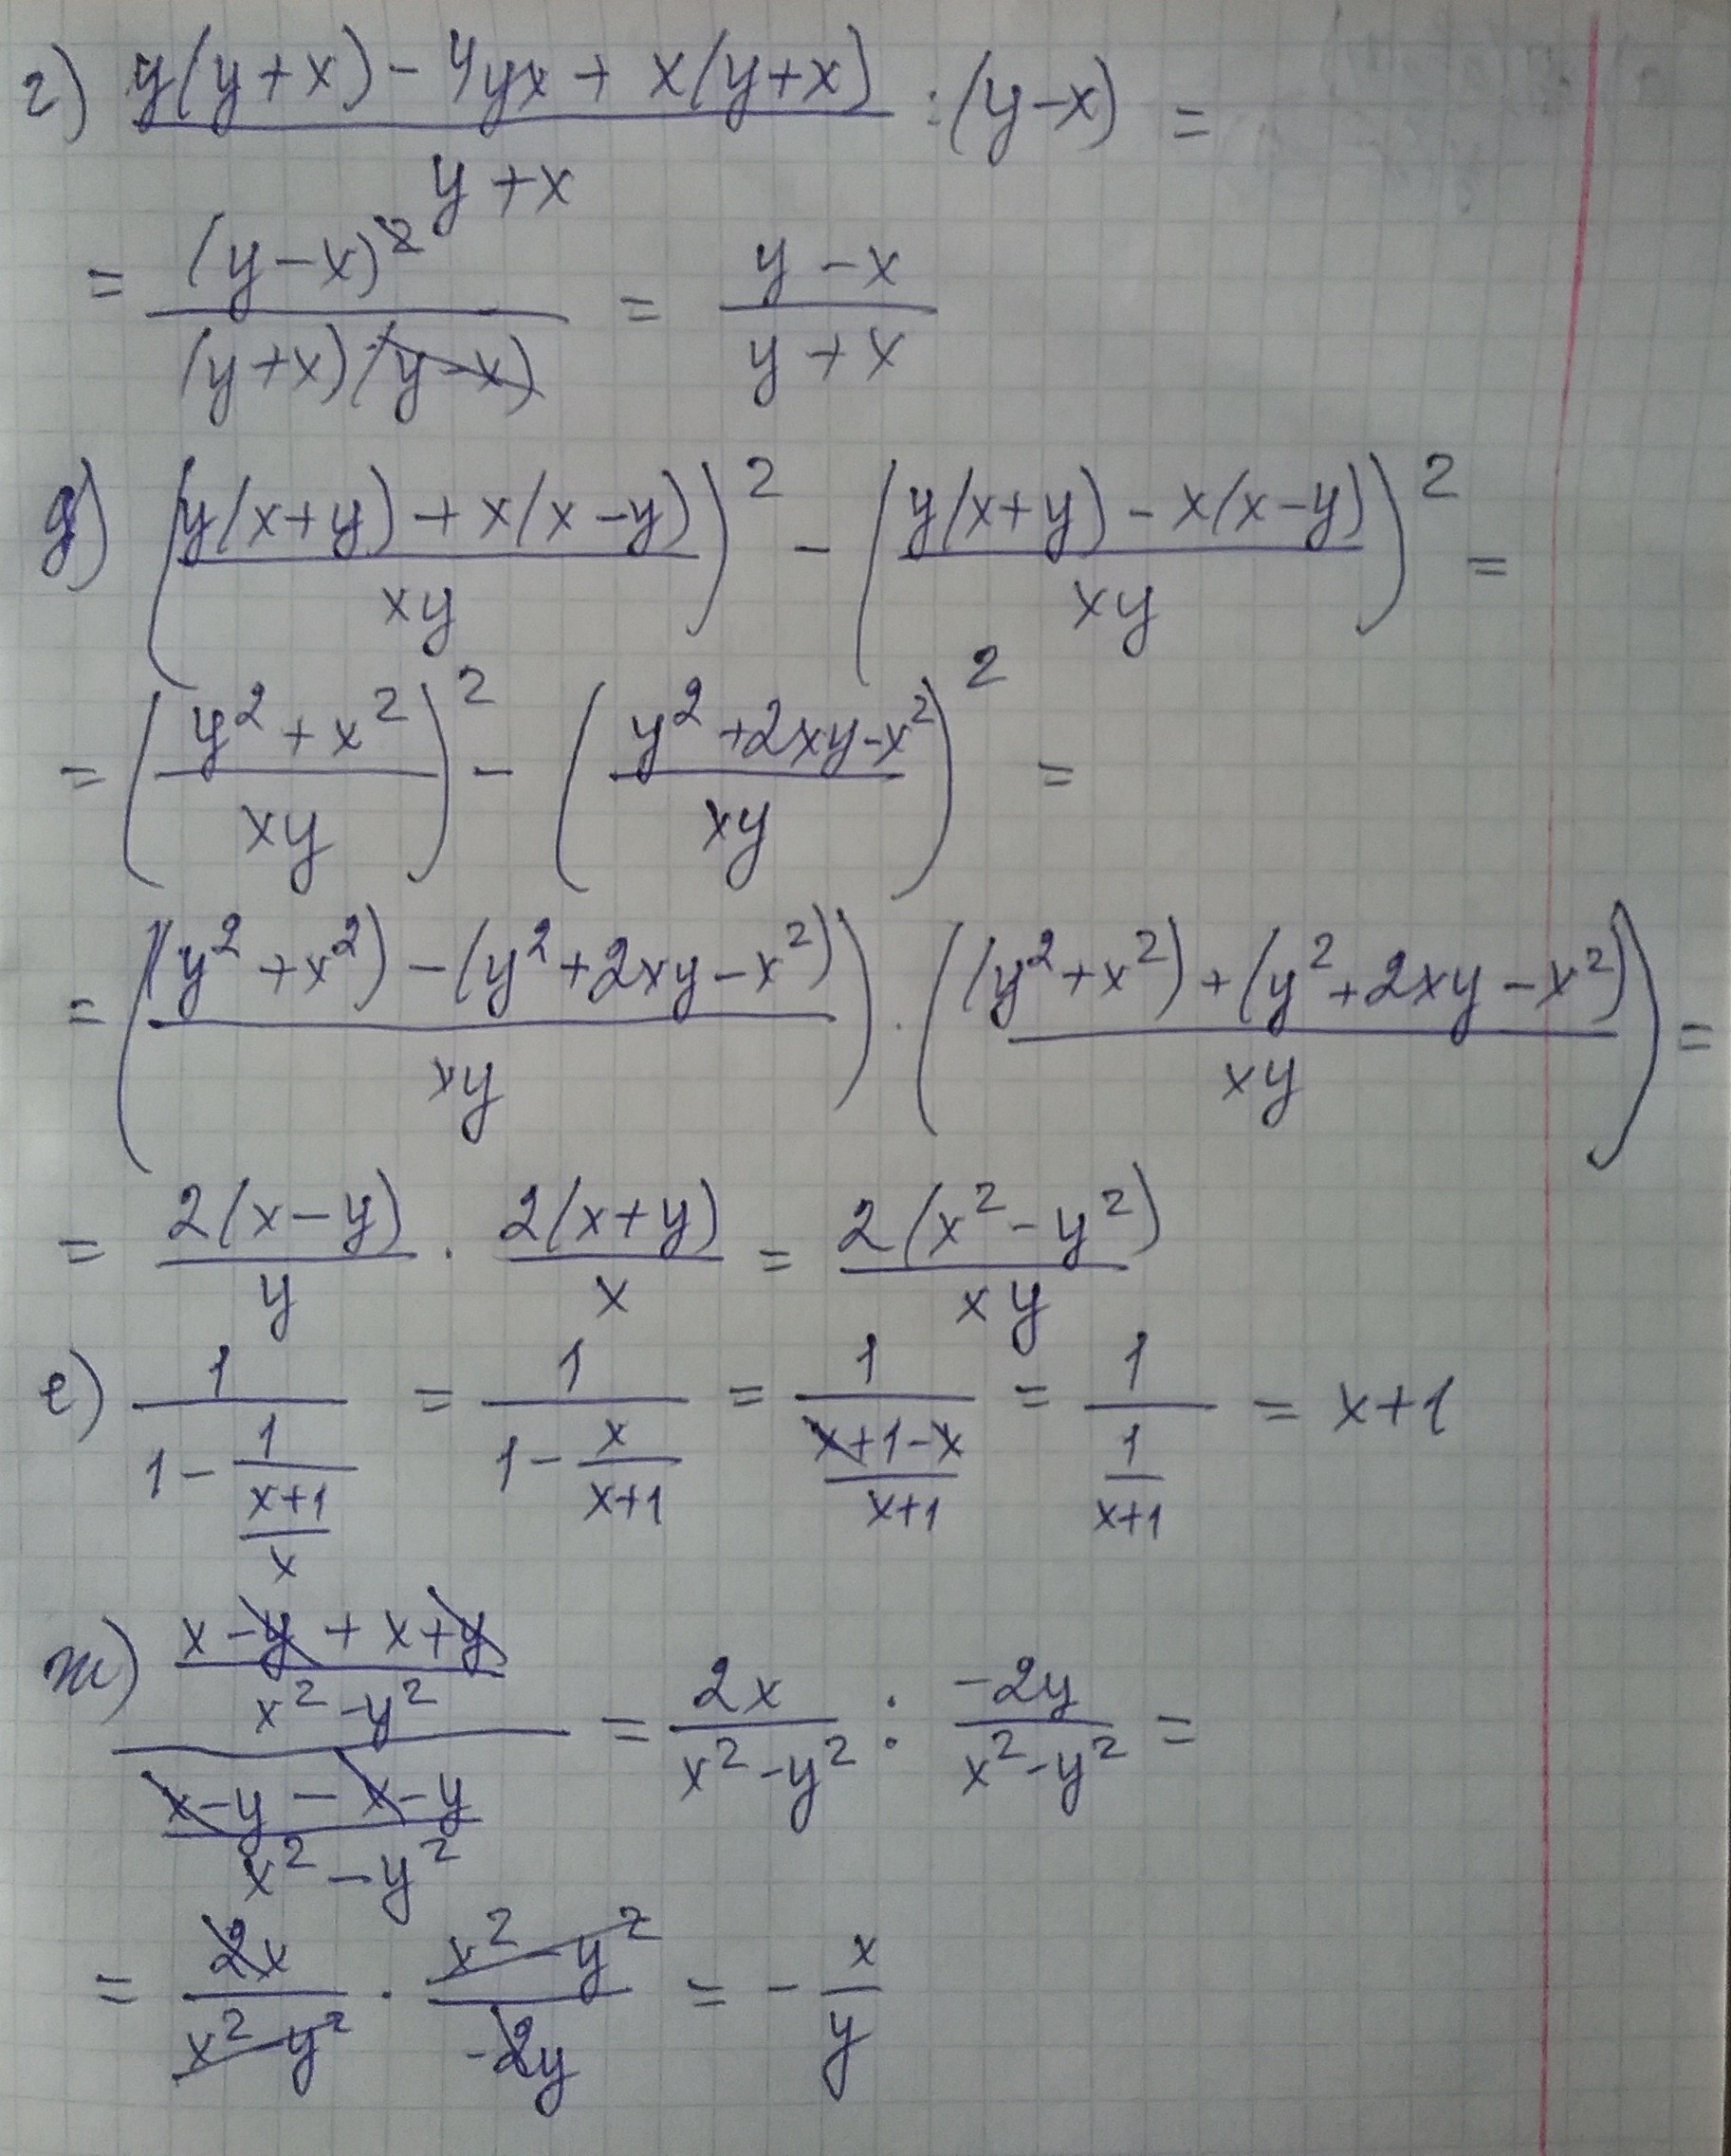 г) (y(y+x) - 4yx + x(y+x))/(y+x) : (y-x) =
= (y-x)²/((y+x)(y-x)) = (y-x)/(y+x)
д) ((y(x+y) + x(x-y))/(xy))² - ((y(x+y) - x(x-y))/(xy))² =
= ((y² + x²)/(xy))² - ((y² + 2xy - x²)/(xy))² =
= (((y² + x²) - (y² + 2xy - x²))/(xy)) · (((y² + x²) + (y² + 2xy - x²))/(xy)) =
= 2(x-y)/y · 2(x+y)/x = 2(x² - y²)/(xy)
е) 1/(1 - 1/((x+1)/x)) = 1/(1 - x/(x+1)) = 1/((x+1-x)/(x+1)) = 1/(1/(x+1)) = x+1
ж) ((x-y + x+y)/(x² - y²))/((x-y - x-y)/(x² - y²)) = 2x/(x² - y²) : -2y/(x² - y²) =
= 2x/(x² - y²) · (x² - y²)/(-2y) = - x/y